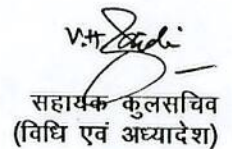 सहायक कुलसचिव
(विधि एवं अध्यादेश)